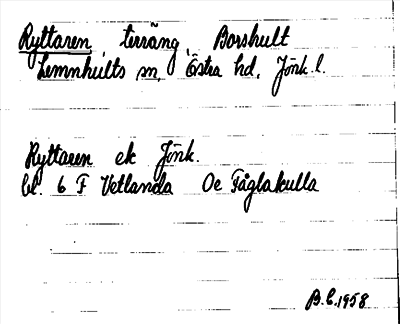 Ryttaren, terräng, Borshult
Lemnhults sn, Östra hd, Jönk. l.
Ryttaren ek Jönk.
bl. 6 F Vetlanda Oc Fåglakulla
B.C.1958